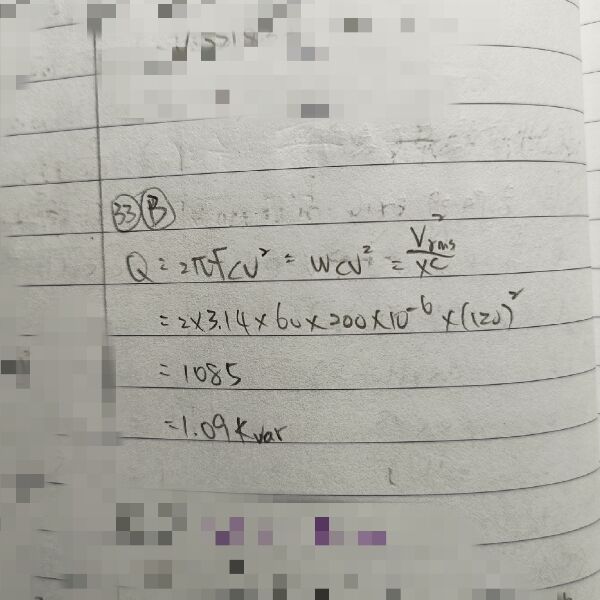 33 B
Q = 2πfCV² = WCV² = V²rms/XC
= 2×3.14×60×200×10⁻⁶×(120)²
= 1085
=1.09Kvar